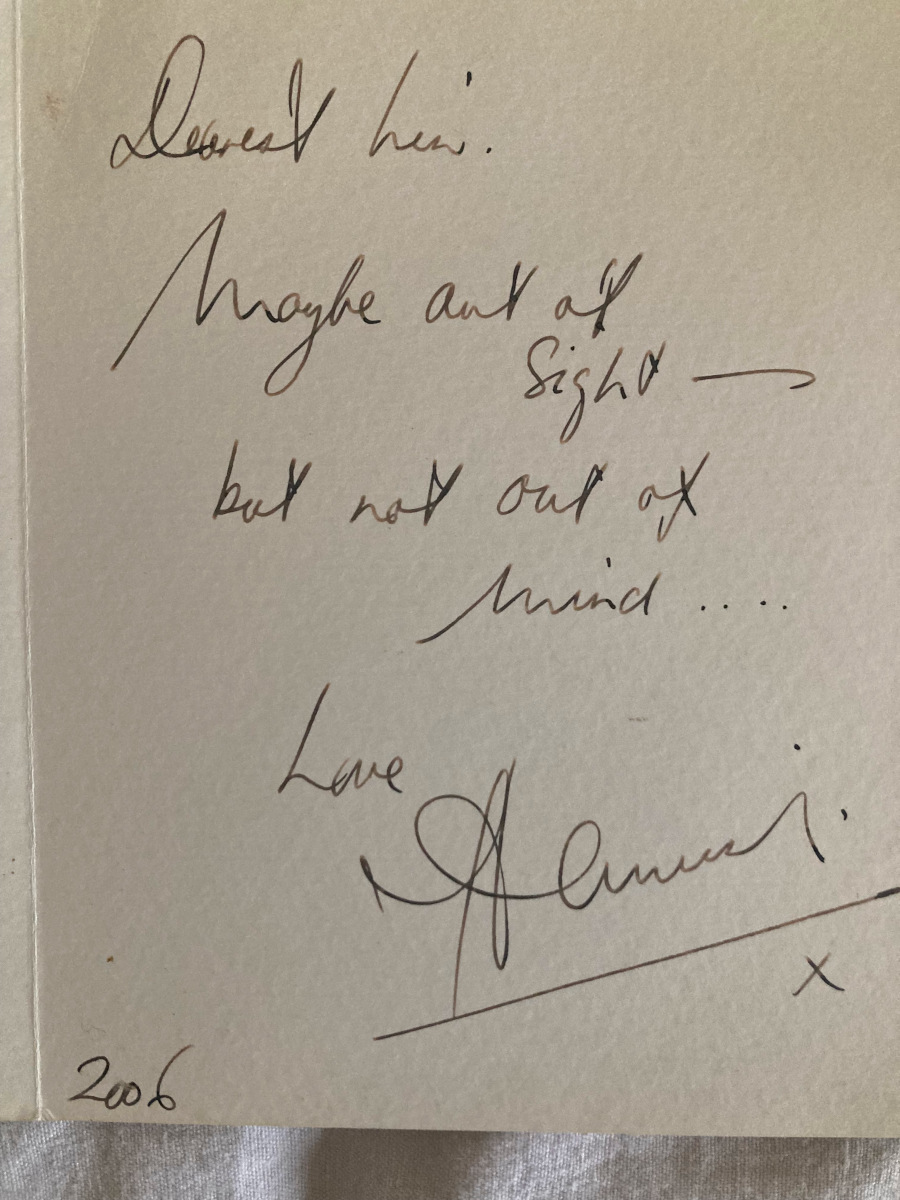 Dearest Lin.
Maybe out of
sight —
but not out of
mind .....
Love
x
2006